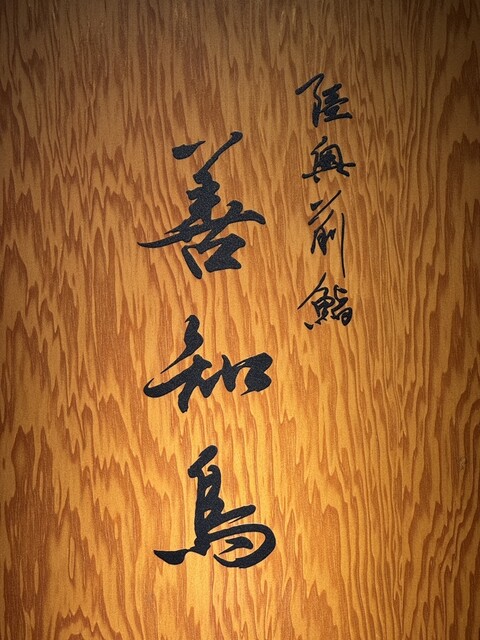 陸奥前鮨
善知鳥